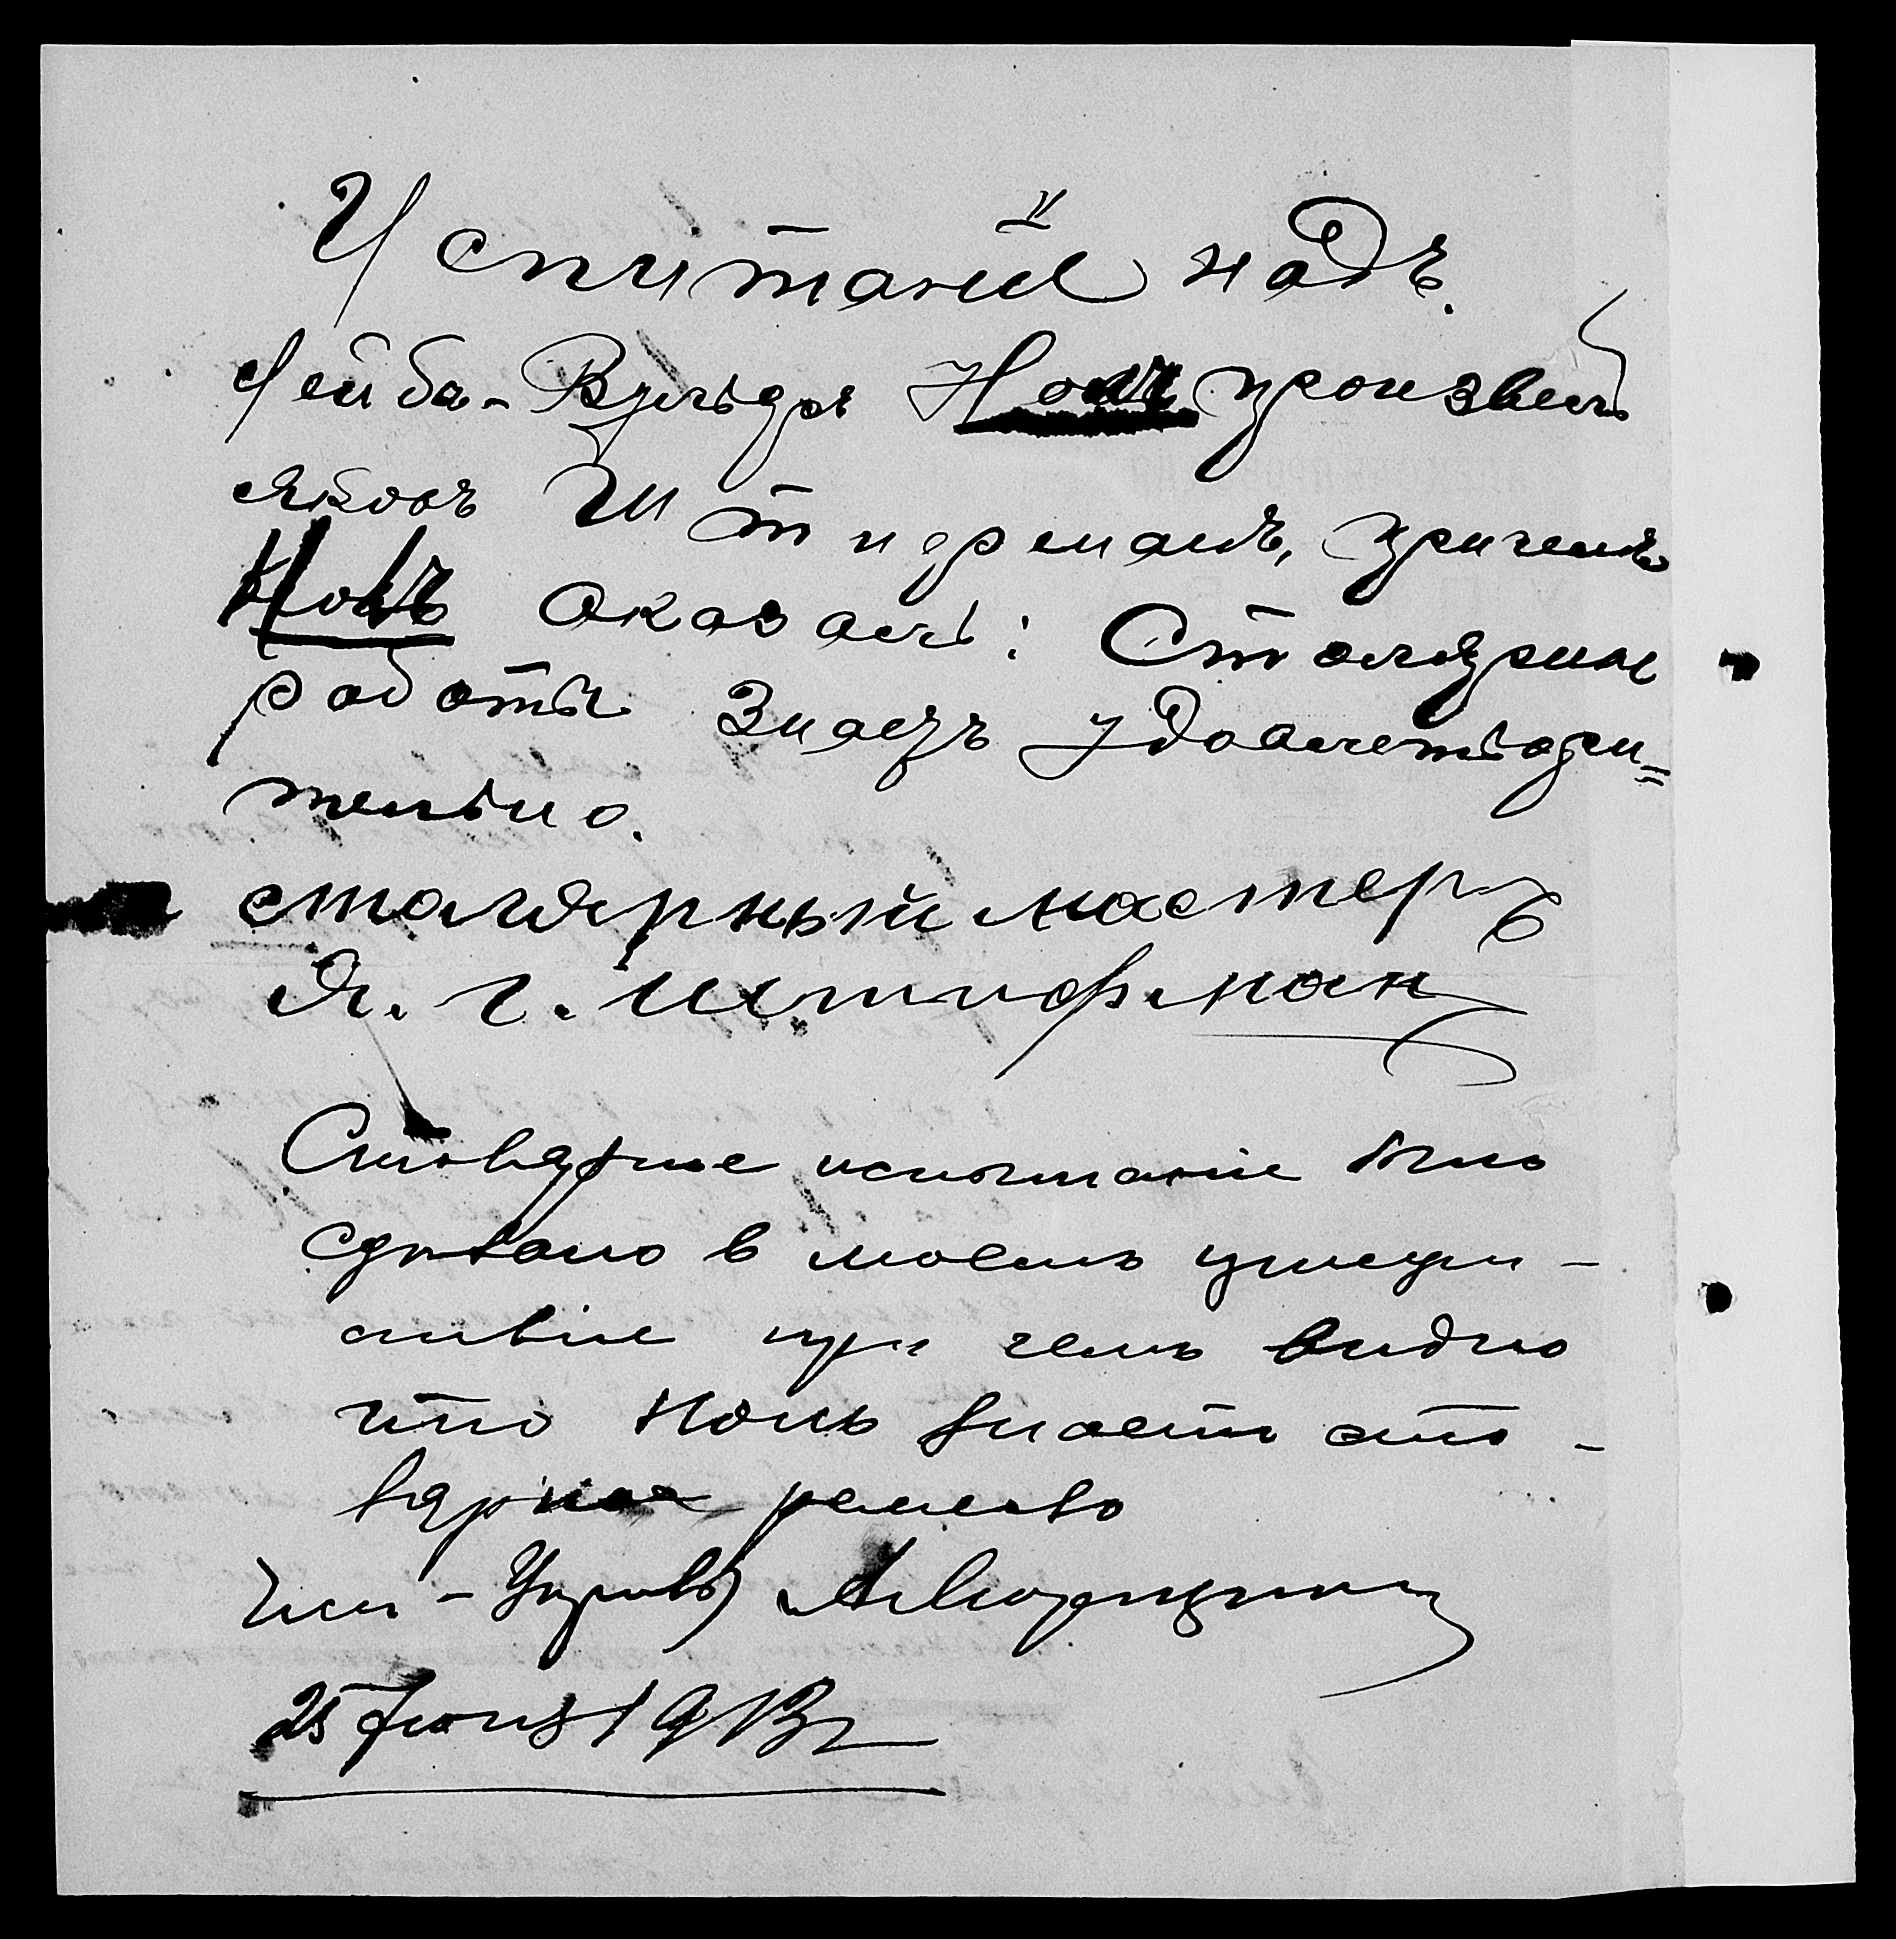 Испитаніе надъ
Лейба-Вульфъ Нокъ произвелъ
Яковъ Штифманъ, причемъ
Нокъ оказалъ: Столярные
работы знаетъ удовлетвори=
тельно.
столярный мастеръ
Я. Г. Штифман
Столярное испытаніе было
сделано в моемъ
при чемъ видно
что Нокъ знаетъ сто-
лярное ремесло
Член-Управы
25 Іюня 1913 г